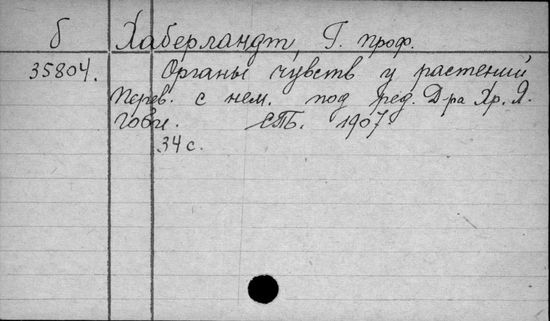 б Хаберландт, Г. проф.
35804. Органы чувств у растений
Перев. с нем. под ред. Д-ра Хр. Я.
Гоби. СПБ. 1907.
34 с.